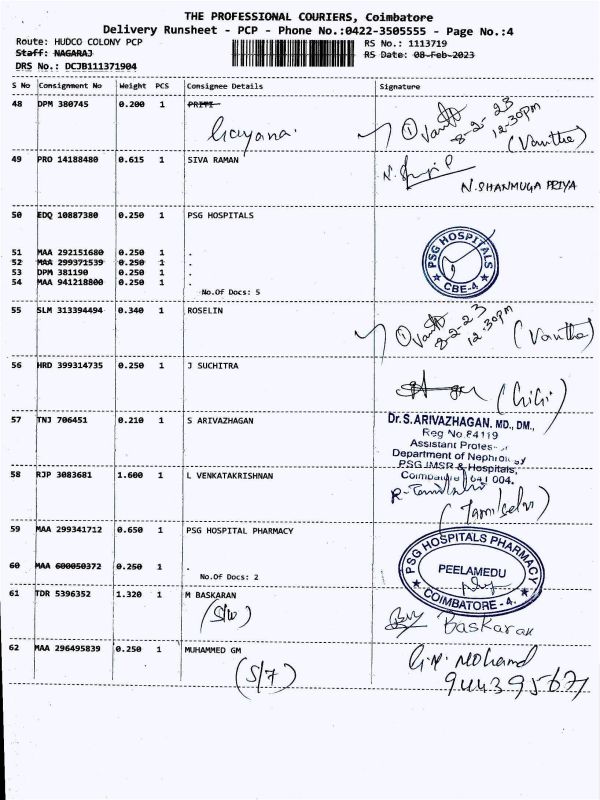 THE PROFESSIONAL COURIERS, Coimbatore
Delivery Runsheet - PCP - Phone No.:0422-3505555 - Page No.:4
Route: HUDCO COLONY PCP RS No.: 1113719
Staff: NAGARAJ RS Date: 08-Feb-2023
DRS No.: DCJB111371904
S No Consignment No Weight PCS Consignee Details Signature
48 DPM 380745 0.200 1 PRITI
Gayana. 1 8-2-23 12.30pm (Vanitha)
49 PRO 14188480 0.615 1 SIVA RAMAN
N. SHANMUGA PRIYA
50 EDQ 10887380 0.250 1 PSG HOSPITALS
PSG HOSPITALS CBE-4
51 MAA 292151680 0.250 1 .
52 MAA 299371539 0.250 1 .
53 DPM 381190 0.250 1 .
54 MAA 941218800 0.250 1 .
No.Of Docs: 5
55 SLM 313394494 0.340 1 ROSELIN
1 8-2-23 12.30pm (Vanitha)
56 HRD 399314735 0.250 1 J SUCHITRA
57 TNJ 706451 0.210 1 S ARIVAZHAGAN
Dr.S.ARIVAZHAGAN. MD., DM.,
Reg No 84119
Assistant Profes
Department of Nephrology
PSG IMSR & Hospitals,
Coimbatore 641 004.
58 RJP 3083681 1.600 1 L VENKATAKRISHNAN
R-Tamilselvi
(Tamilselvi)
59 MAA 299341712 0.650 1 PSG HOSPITAL PHARMACY
PSG HOSPITALS PHARMACY
PEELAMEDU
COIMBATORE - 4.
60 MAA 600050372 0.250 1 .
No.Of Docs: 2
61 TDR 5396352 1.320 1 M BASKARAN
(S/W) Baskaran
62 MAA 296495839 0.250 1 MUHAMMED GM
(S/7) G.M. Mohamd
944395671